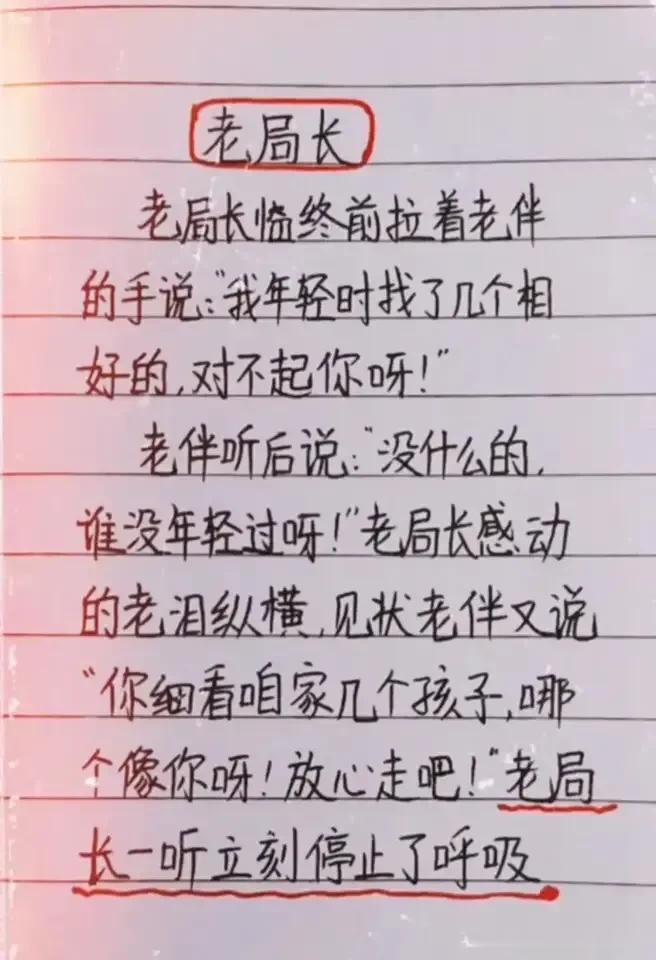 老局长
老局长临终前拉着老伴
的手说:"我年轻时找了几个相
好的,对不起你呀!"
老伴听后说:"没什么的,
谁没年轻过呀!"老局长感动
的老泪纵横,见状老伴又说
"你细看咱家几个孩子,哪
个像你呀!放心走吧!"老局
长一听立刻停止了呼吸